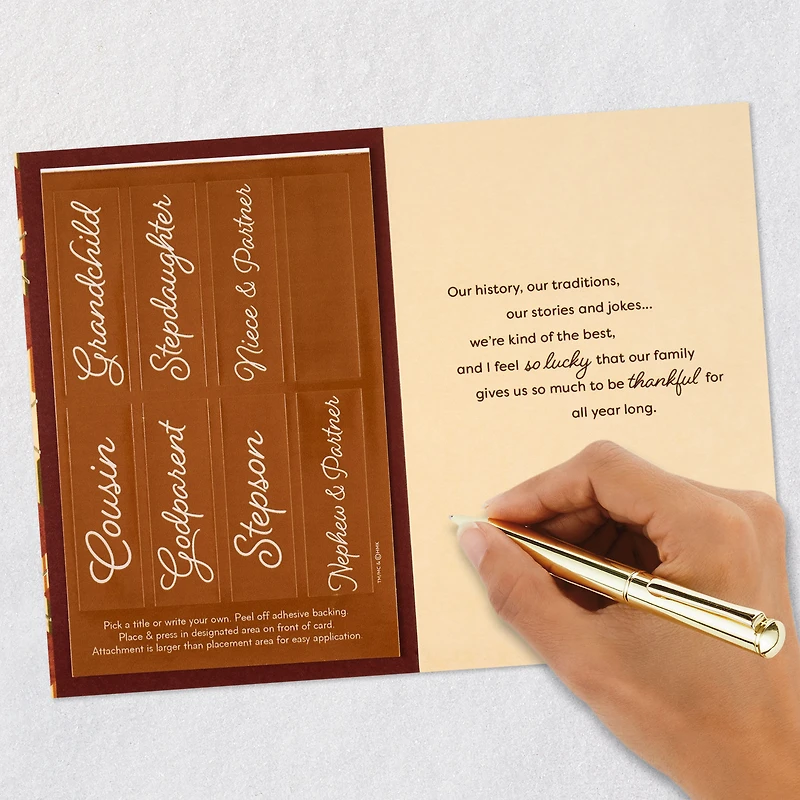 Grandchild
Stepdaughter
Niece & Partner
Cousin
Godparent
Stepson
Nephew & Partner
TM/MC & ©HMK
Pick a title or write your own. Peel off adhesive backing.
Place & press in designated area on front of card.
Attachment is larger than placement area for easy application.
Our history, our traditions,
our stories and jokes...
we're kind of the best,
and I feel so lucky that our family
gives us so much to be thankful for
all year long.